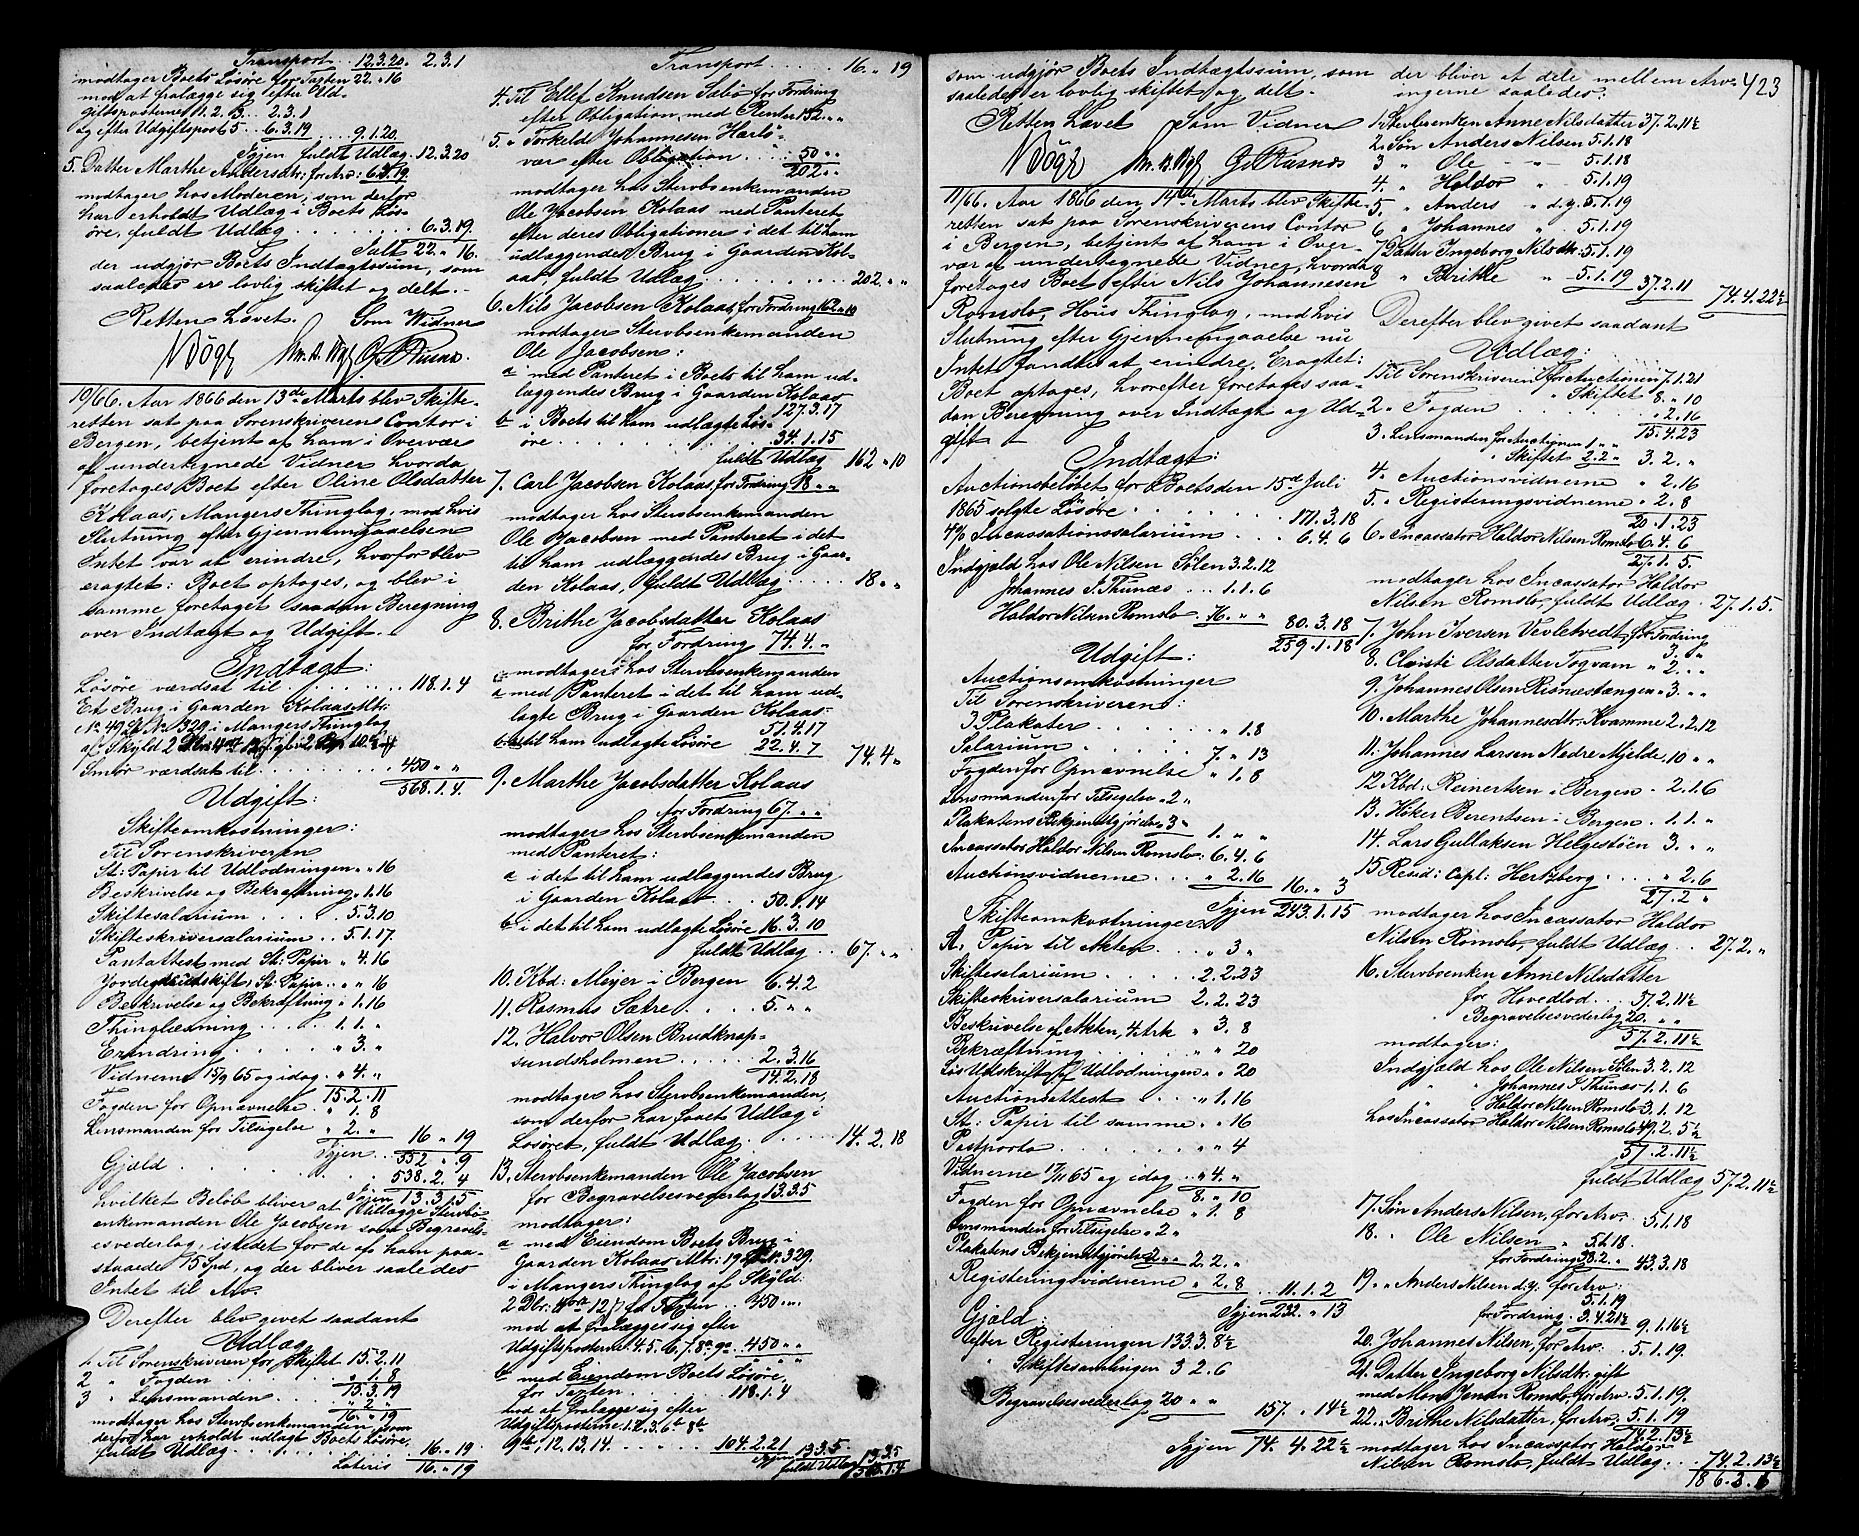 Transport . . 12.3.20. 2.3.1
modtager Boets Løsøre for Taxten 22. " 16
mod at fralægge sig efter Ud-
giftsposterne 1. 2. 3. . . 2.3.1
og efter Udgiftspost 5 . . 6.3.19 9.1.20.
Igjen fuldt Udlæg . 12.3.20
5. Datter Marthe Andersdtr: for Arv: 6.3.19
modtager hos Moderen, som derfor
har erholdt Udlæg i Boets Løs-
øre, fuldt Udlæg . . . . . . 6.3.19.
Salt 22. " 16.
der udgjør Boets Indtægtssum, som
saaledes er lovlig skiftet og delt. -
Retten hævet. Som Vidner
10/66. Aar 1866 den 13de Marts blev Skifte-
retten sat paa Sorenskriverens Contor i
Bergen, betjent af ham i Overvær
af undertegnede Vidner hvorda
foretages Boet efter Oline Olsdatter
Kolaas, Mangers Thinglag, mod hvis
Slutning efter Gjennemgaaelsen
Intet var at erindre, hvorfor blev
eragtet: Boet optages, og blev i
samme foretaget saadan Beregning
over Indtægt og Udgift. -
Indtægt:
Løsøre værdsat til . . . . . . . 118.1.4
Et Brug i Gaarden Kolaas Mtr:
Smør værdsat til . . . . . . 450 " "
568.1.4.
Udgift:
Skifteomkostninger:
Til Sorenskriveren
St: Papir til Udlodningen . " 16
Beskrivelse og Bekræftning " 1.16
Skiftesalarium . . . . 5.3.10
Skifteskriversalarium . . 5.1.17.
Pantattest med St: Papir " 4.16
Beskrivelse og Bekræftning i 1.16
Thinglæsning . . . . 1.1. "
Erindring . . . . . " 3. "
Vidnerne 15/9 65 og idag . " 4. "
15.2.11
Fogden for Opnævnelse . " 1.8
Lensmanden for Tilsigelse " 2. " 16 " 19
Igjen . . 552 " 9
Gjæld . . . . . . 538.2.4
Igjen 13.3.5
hvilket Beløb bliver at tillægge Stervbo-
enkemanden Ole Jacobsen som Begravel-
sesvederlag, istedet for de af ham paa-
staaede 15 Spd, og der bliver saaledes
Intet til Arv.
Derefter blev givet saadant
Udlæg
1. Til Sorenskriveren for Skiftet 15.2.11
2 " Fogden . . . . " 1.8
15.3.19
3 " Lensmanden . . . " 2 "
16. " 19
modtager hos Stervboenkemanden, som
derfor har erholdt udlagt Boets Løsøre,
fuldt Udlæg . . . . . . 16. " 19
Lateris 16. " 19
Transport . . . . . 16. " 19
4. Til Ellef Knudsen Sæbø for Fordring
efter Obligation, med Renter 152. " "
5. " Torkeld Johannesen Herlø-
vær efter Obligation . . . 50 " "
202. " "
modtager hos Stervboenkemanden
Ole Jacobsen Kolaas med Panteret
efter deres Obligationer i det til ham
udlæggende Brug i Gaarden Kol-
aas, fuldt Udlæg . . . . . . . 202. " "
6. Nils Jacobsen Kolaas, for Fordring 162 " 10
modtager Stervboenkemanden
Ole Jacobsen:
a med Panteret i Boets til ham ud-
læggendes Brug i Gaarden Kolaas
127.3.17
b i Boets til ham udlagte Løs-
øre . . . . . . . 34.1.15
fuldt Udlæg 162 " 10
7. Carl Jacobsen Kolaas, for Fordring 18 " "
modtager hos Stervboenkemanden
Ole Jacobsen med Panteret i det
til ham udlæggendes Brug i Gaar-
den Kolaas, fuldt Udlæg . . . 18 " "
8. Brithe Jacobsdatter Kolaas
for Fordring 74.4. "
modtager hos Stervboenkemanden
a med Panteret i det til ham ud-
lagte Brug i Gaarden Kolaas-
51.4.17
b til ham udlagte Løsøre 22.4.7 74.4 "
9. Marthe Jacobsdatter Kolaas
for Fordring 67. " "
modtager hos Stervboenkemanden
med Panteret:
a i det til ham udlæggendes Brug
i Gaarden Kolaas . . . 50.1.14
b i det til ham udlagte Løsøre 16.3.10
fuldt Udlæg . . 67. " "
10. Kbd: Meyer i Bergen 6.4.2
11. Rasmus Sætre . . . . 5. " "
12. Halvor Olsen Brudknap-
sundsholmen . . . . . 2.3.16
14.2.18
modtager hos Stervboenkemanden,
som derfor har faaet Udlæg i
Løsøret, fuldt Udlæg . . . . . 14.2.18
13. Stervboenkemanden Ole Jacobsen
for Begravelsesvederlag 13.3.5
modtager:
a med Eiendom Boets Brug i
i Mangers Thinglag af Skyld:
mod at fralægge sig efter
Udgiftsposterne 4. 5. 6. 7. 8a. 9a. 450 " "
b med Eiendom Boets Løsøre,
for Taxten . . . . . 118.1.4
mod at fralægge sig efter
Udgiftsposterne 1. 2. 3. 6b 8b
9b, 12, 13, 14. . . . . 104.2.21 13.3.5
Igjen fuldt Udlæg 13.3.5
568.1.4
423
som udgjør Boets Indtægtssum, som
saaledes er lovlig skiftet og delt. -
Retten hævet Som Vidner
11/66. Aar 1866 den 14de Marts blev Skifte-
retten sat paa Sorenskriverens Contor
i Bergen, betjent af ham i Over-
vær af undertegnede Vidner, hvorda
foretages Boet efter Nils Johannesen
Romslo, Hous Thinglag, mod hvis
Slutning efter Gjennemgaaelse nu
Intet fandtes at erindre. Eragtet:
Boet optages, hvorefter foretages saa-
dan Beregning over Indtægt og Ud-
gift -
Indtægt:
Auctionsbeløbet for Boets den 15de Juli
1865 solgte Løsøre . . . . . . 171.3.18
4% Incassationssalarium . . . 6.4.6
Indgjæld hos Ole Nilsen Solen 3.2.12
Johannes I. Thunæs . . 1.1.6
Haldor Nilsen Romslo . 76. " " 80.3.18
259.1.18
Udgift:
Auctionsomkostninger
Til Sorenskriveren:
3 Plakater . . . . . . " 1.8
Salarium . . . . . . 7. " 13
Fogden for Opnævnelse " 1.8
Lensmanden for Tilsigelse " 2 "
Plakatens Bekjendtgjørelse " 3 " 1. " "
Incassator Haldor Nilsen Romslo: 6.4.6
Auctionsvidnerne . . . . " 2.16 16. " 3
Igjen 243.1.15
Skifteomkostninger
St. Papir til Akten . . . " 3 "
Skiftesalarium . . . . . 2.2.23
Skifteskriversalarium 2.2.23
Beskrivelse af Akten, 4 Ark " 3.8
Bekræftning . . . . . " " 20
Lis Udskrift af Udlodningen " " 20
Auctionsattest . . . . " 1.16
St: Papir til samme . . " " 16
Postporto . . . . . . " " 4
Vidnerne 17/11 65 og idag . . " 4. "
8. " 10
Fogden for Opnævnelse " 1.8
Lensmanden for Tilsigelse " 2 "
Plakatens Bekjendtgjørelse 2 " " 2.2. "
Registeringsvidnerne . . " 2.8 11.1.2
Igjen 232. " 13
Gjæld:
efter Registeringen 133.3.8½
" Skiftesamlingen 3 2.6
Begravelsesvederlag 20 " " 157. " 14½
Igjen 74.4.22½
der bliver at dele mellem Arv-
ingerne saaledes:
1. Stervboenken Anne Nilsdatter 37.2.11½
2. Søn Anders Nilsen 5.1.18
3 " Ole — " — 5.1.18
4. " Haldor " 5.1.19
5. " Anders " d.y. 5.1.19
6 " Johannes " 5.1.19
7 Datter Ingeborg Nilsdtr: 5.1.19
8 " Brithe " 5.1.19 37.2.11
74.4.22½
Derefter blev givet saadant
Udlæg:
1. Til Sorenskriveren for Auctionen 7.1.21
" Skiftet 8. " 10
2. " Fogden . . . . . . . " 2.16
15.4.23
3. Lensmanden for Auctionen 1 " "
" Skiftet 2.2 " 3.2. "
4. Auctionsvidnerne " 2.16
5. Registeringsvidnerne " 2.8
20.1.23
6. Incassator Haldor Nilsen Romslo 6.4.6
27.1.5.
modtager hos Incassator Haldor
Nilsen Romslo, fuldt Udlæg . 27.1.5.
7. John Iversen Vevletvedt, for Fordring
3. "
8. Christi Olsdatter Togvam " 2. "
9. Johannes Olsen Risnæstangen " 3. " "
10. Marthe Johannesdtr: Kvamme 2.2.12
11. Johannes Larsen Nedre Mjelde 10 " "
12 Kbd: Reinertsen i Bergen . 2.1.6
13. Høker Berentsen i Bergen . 1.1. "
14. Lars Gullaksen Helgestøen 3. " "
15 Resid: Capl: Hertzberg . . . . " 2.6
27.2 "
modtager hos Incassator Haldor
Nilsen Romslo, fuldt Udlæg . . 27.2. "
16. Stervboenken Anne Nilsdatter
for Hovedlod . . . 37.2.11½
" Begravelsesvederlag 20. " "
57.2.11½
modtager:
Indgjæld hos Ole Nilsen Solen 3.2.12
" " Johannes I. Thunæs 1.1.6
" " Haldor Nilsen Romslo 3.1.12
hos Incassator Haldor Nilsen Romslo 49.2.5½
57.2.11½
fuldt Udlæg 57.2.11½
17. Søn Anders Nilsen, for Arv . 5.1.18
18. " Ole Nilsen " 5.1.18.
for Fordring 38.2. " 43.3.18
19. " Anders Nilsen d.y. for Arv
5.1.19
for Fordring 3.4.21½ 9.1.16½
20. Johannes Nilsen, for Arv . 5.1.19.
21. Datter Ingeborg Nilsdtr: gift
22. Brithe Nilsdatter, for Arv . 5.1.19
74.2.13½
modtager hos Incassator Haldor
Nilsen Romslo, fuldt Udlæg . . . 74.2.13½
186.3.6